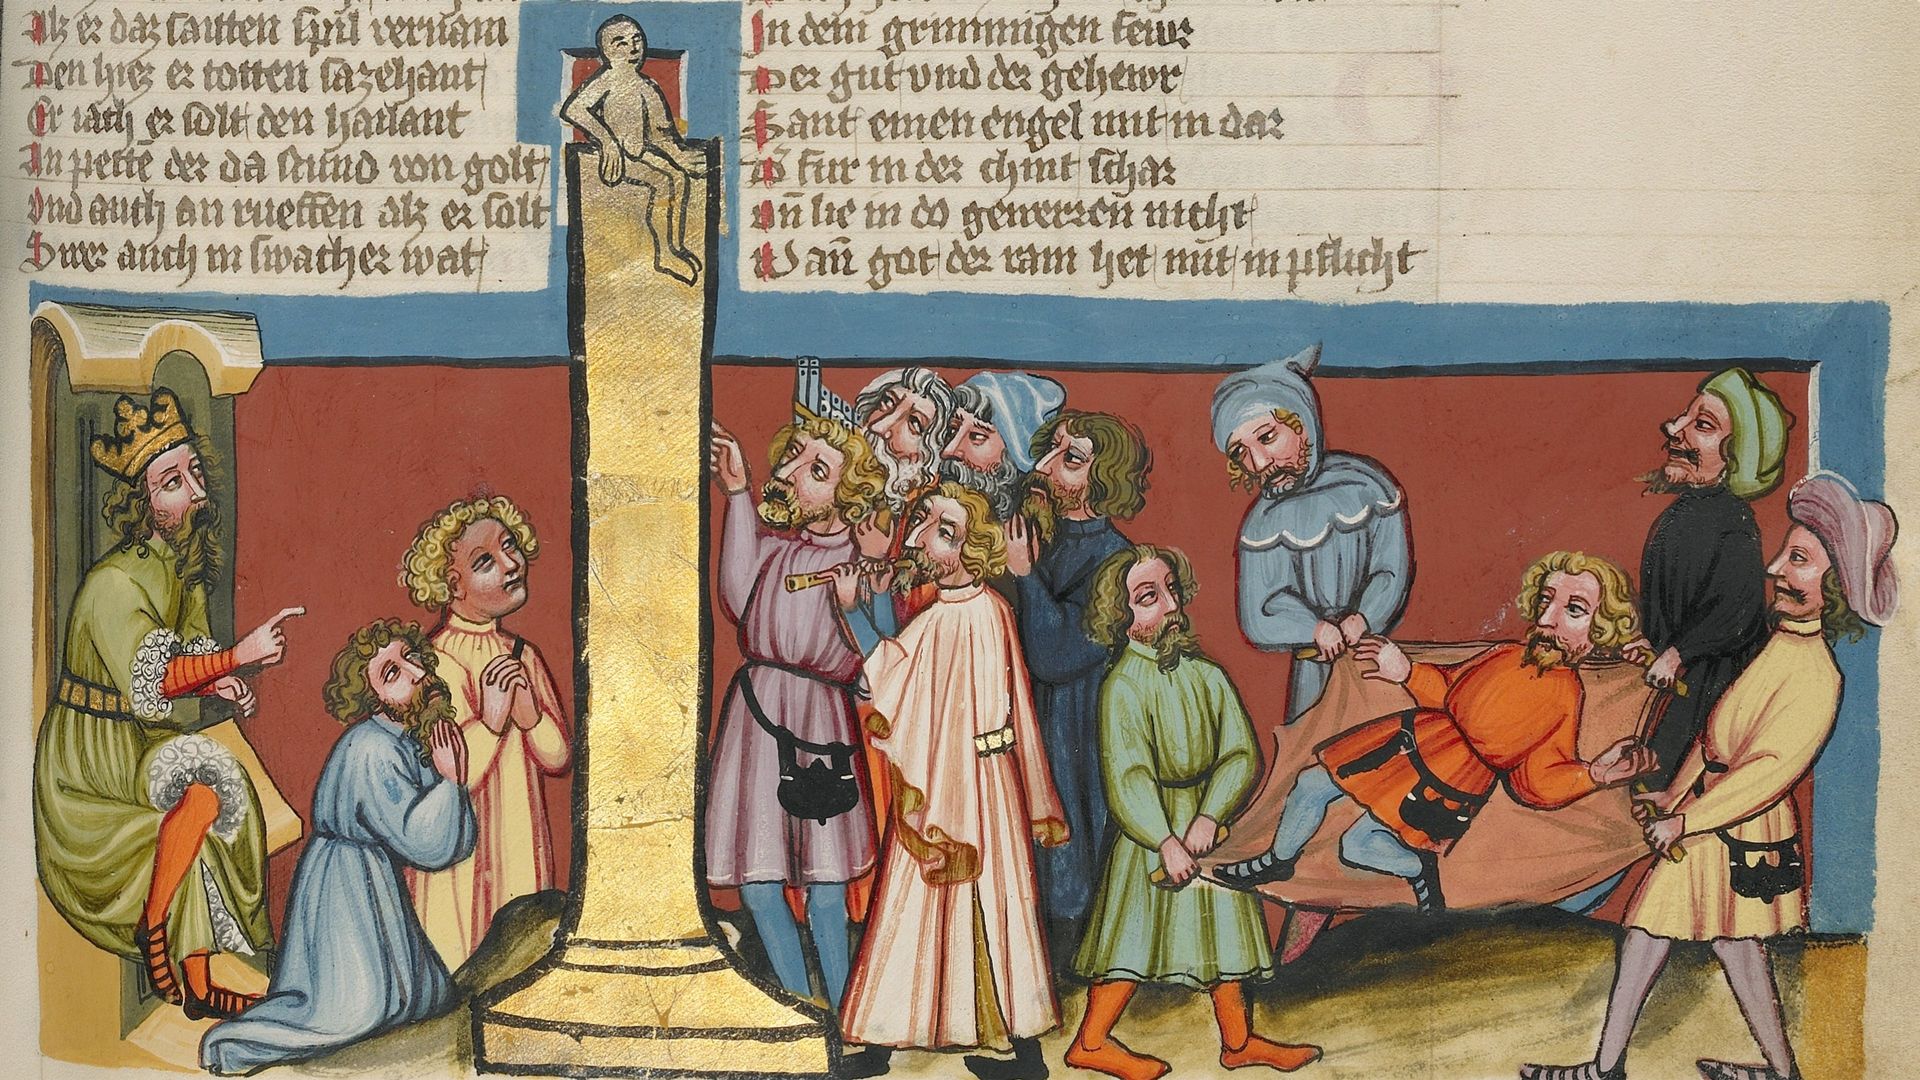 Als er daz sauten spil vernam
Den hiez er totten sazehant
Er iach er solt den hailant
An pette der da stund von golt
Und auch an rueffen als er solt
Swer auch in swacher wat
In dem grimmigen fewr
Der gut vnd der gehewr
Sant einen engel mit in dar
D fur in der chint schar
vn̄ lie in do gewerren nicht
Wan̄ got der ram het mit in pflicht